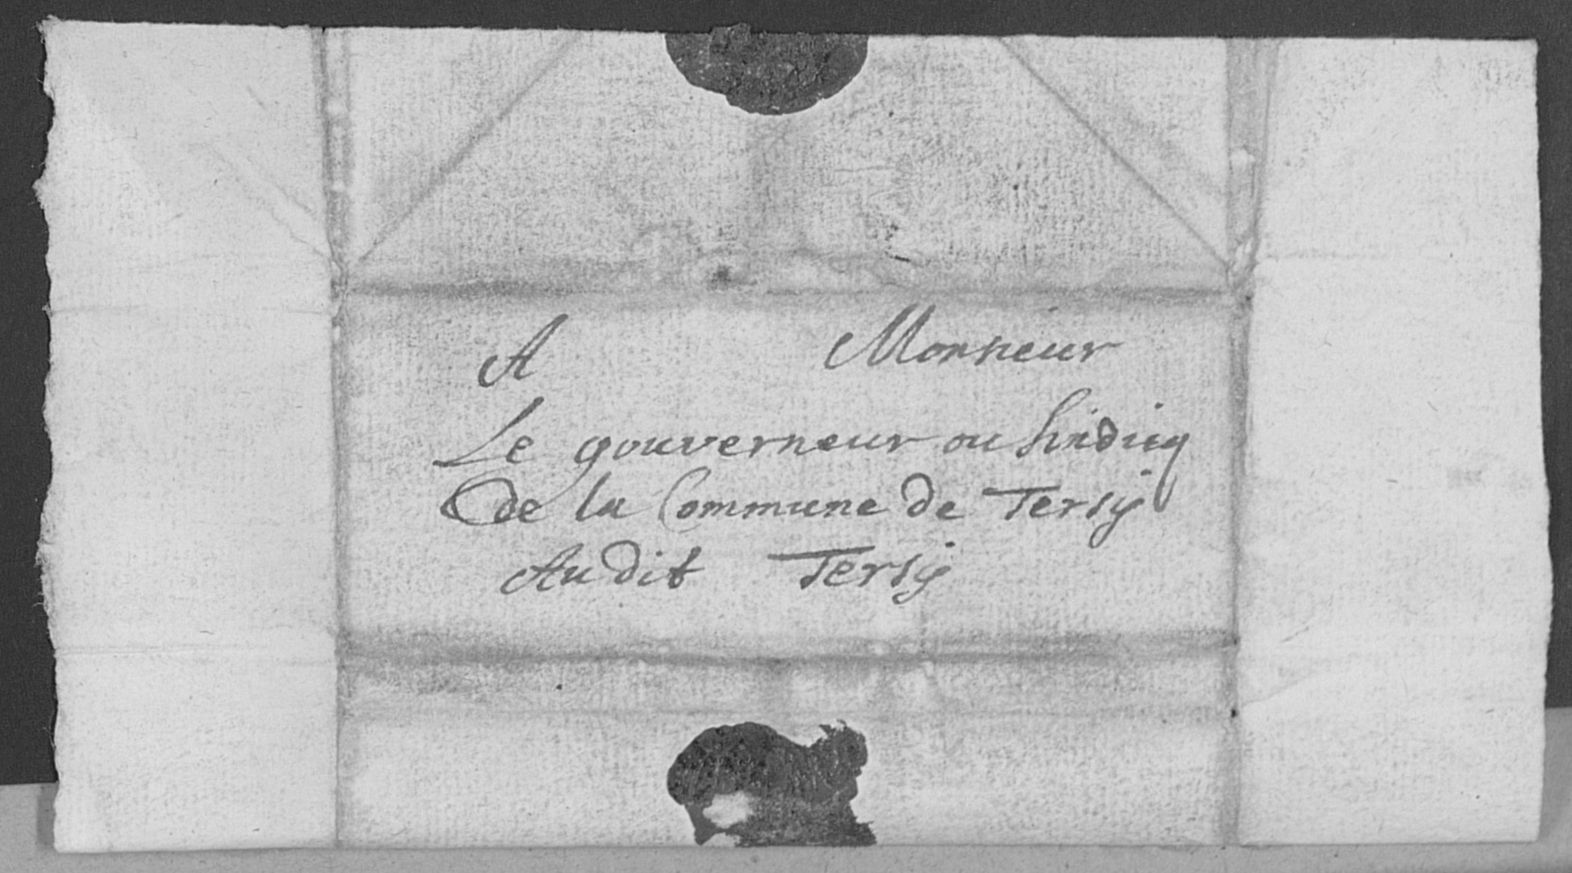 A Monsieur
Le gouverneur ou sindicq
de la Commune de Tersÿ
Audit Tersÿ